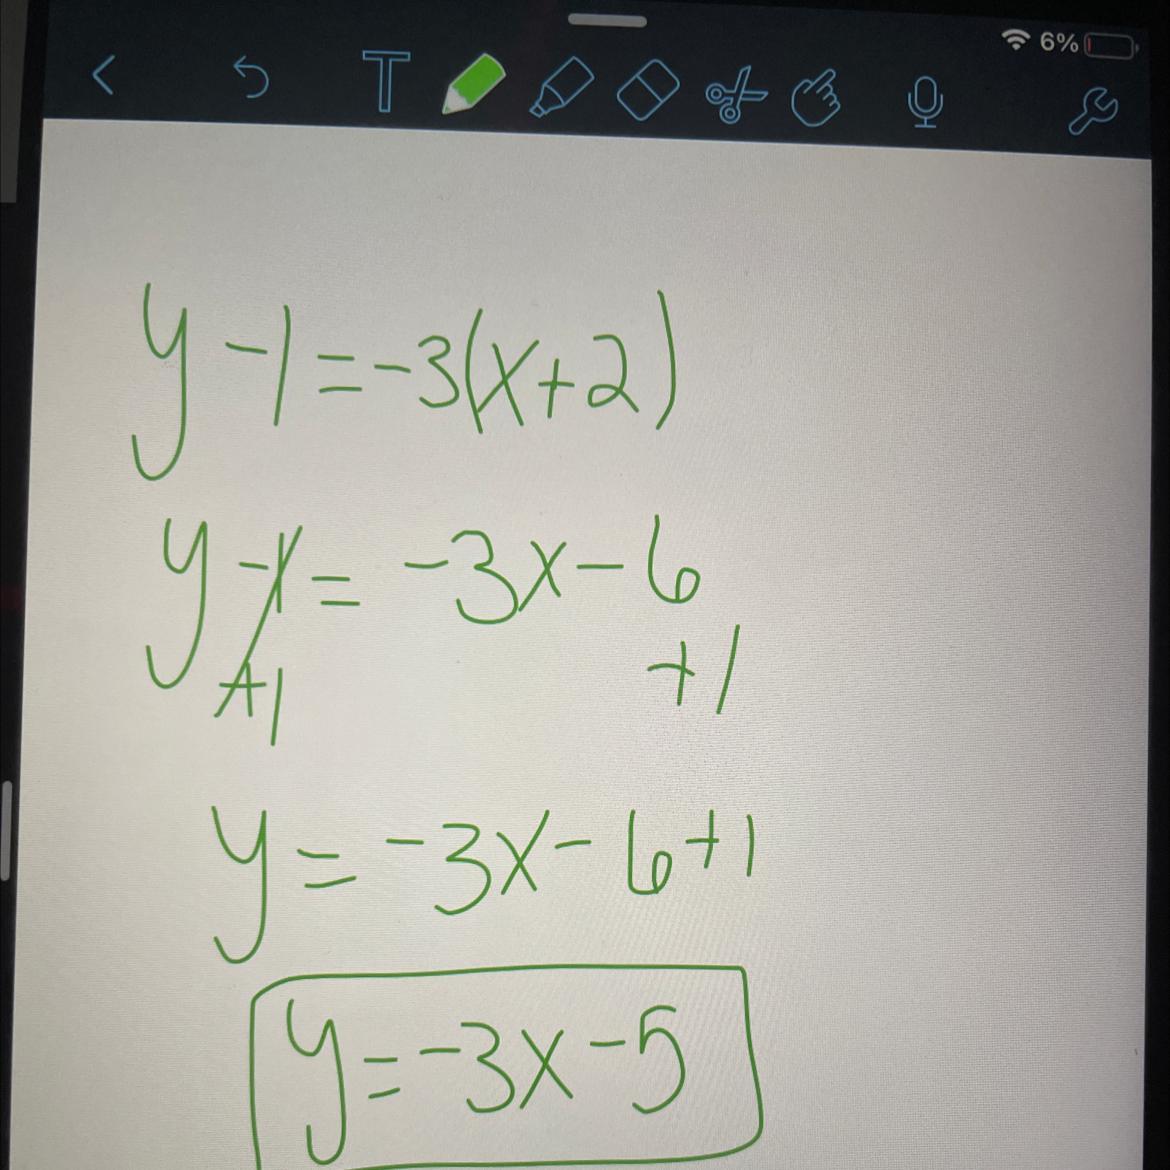 6%
T
y -1 = -3(x+2)
y -1 = -3x - 6
+1 +1
y = -3x - 6 +1
y = -3x - 5